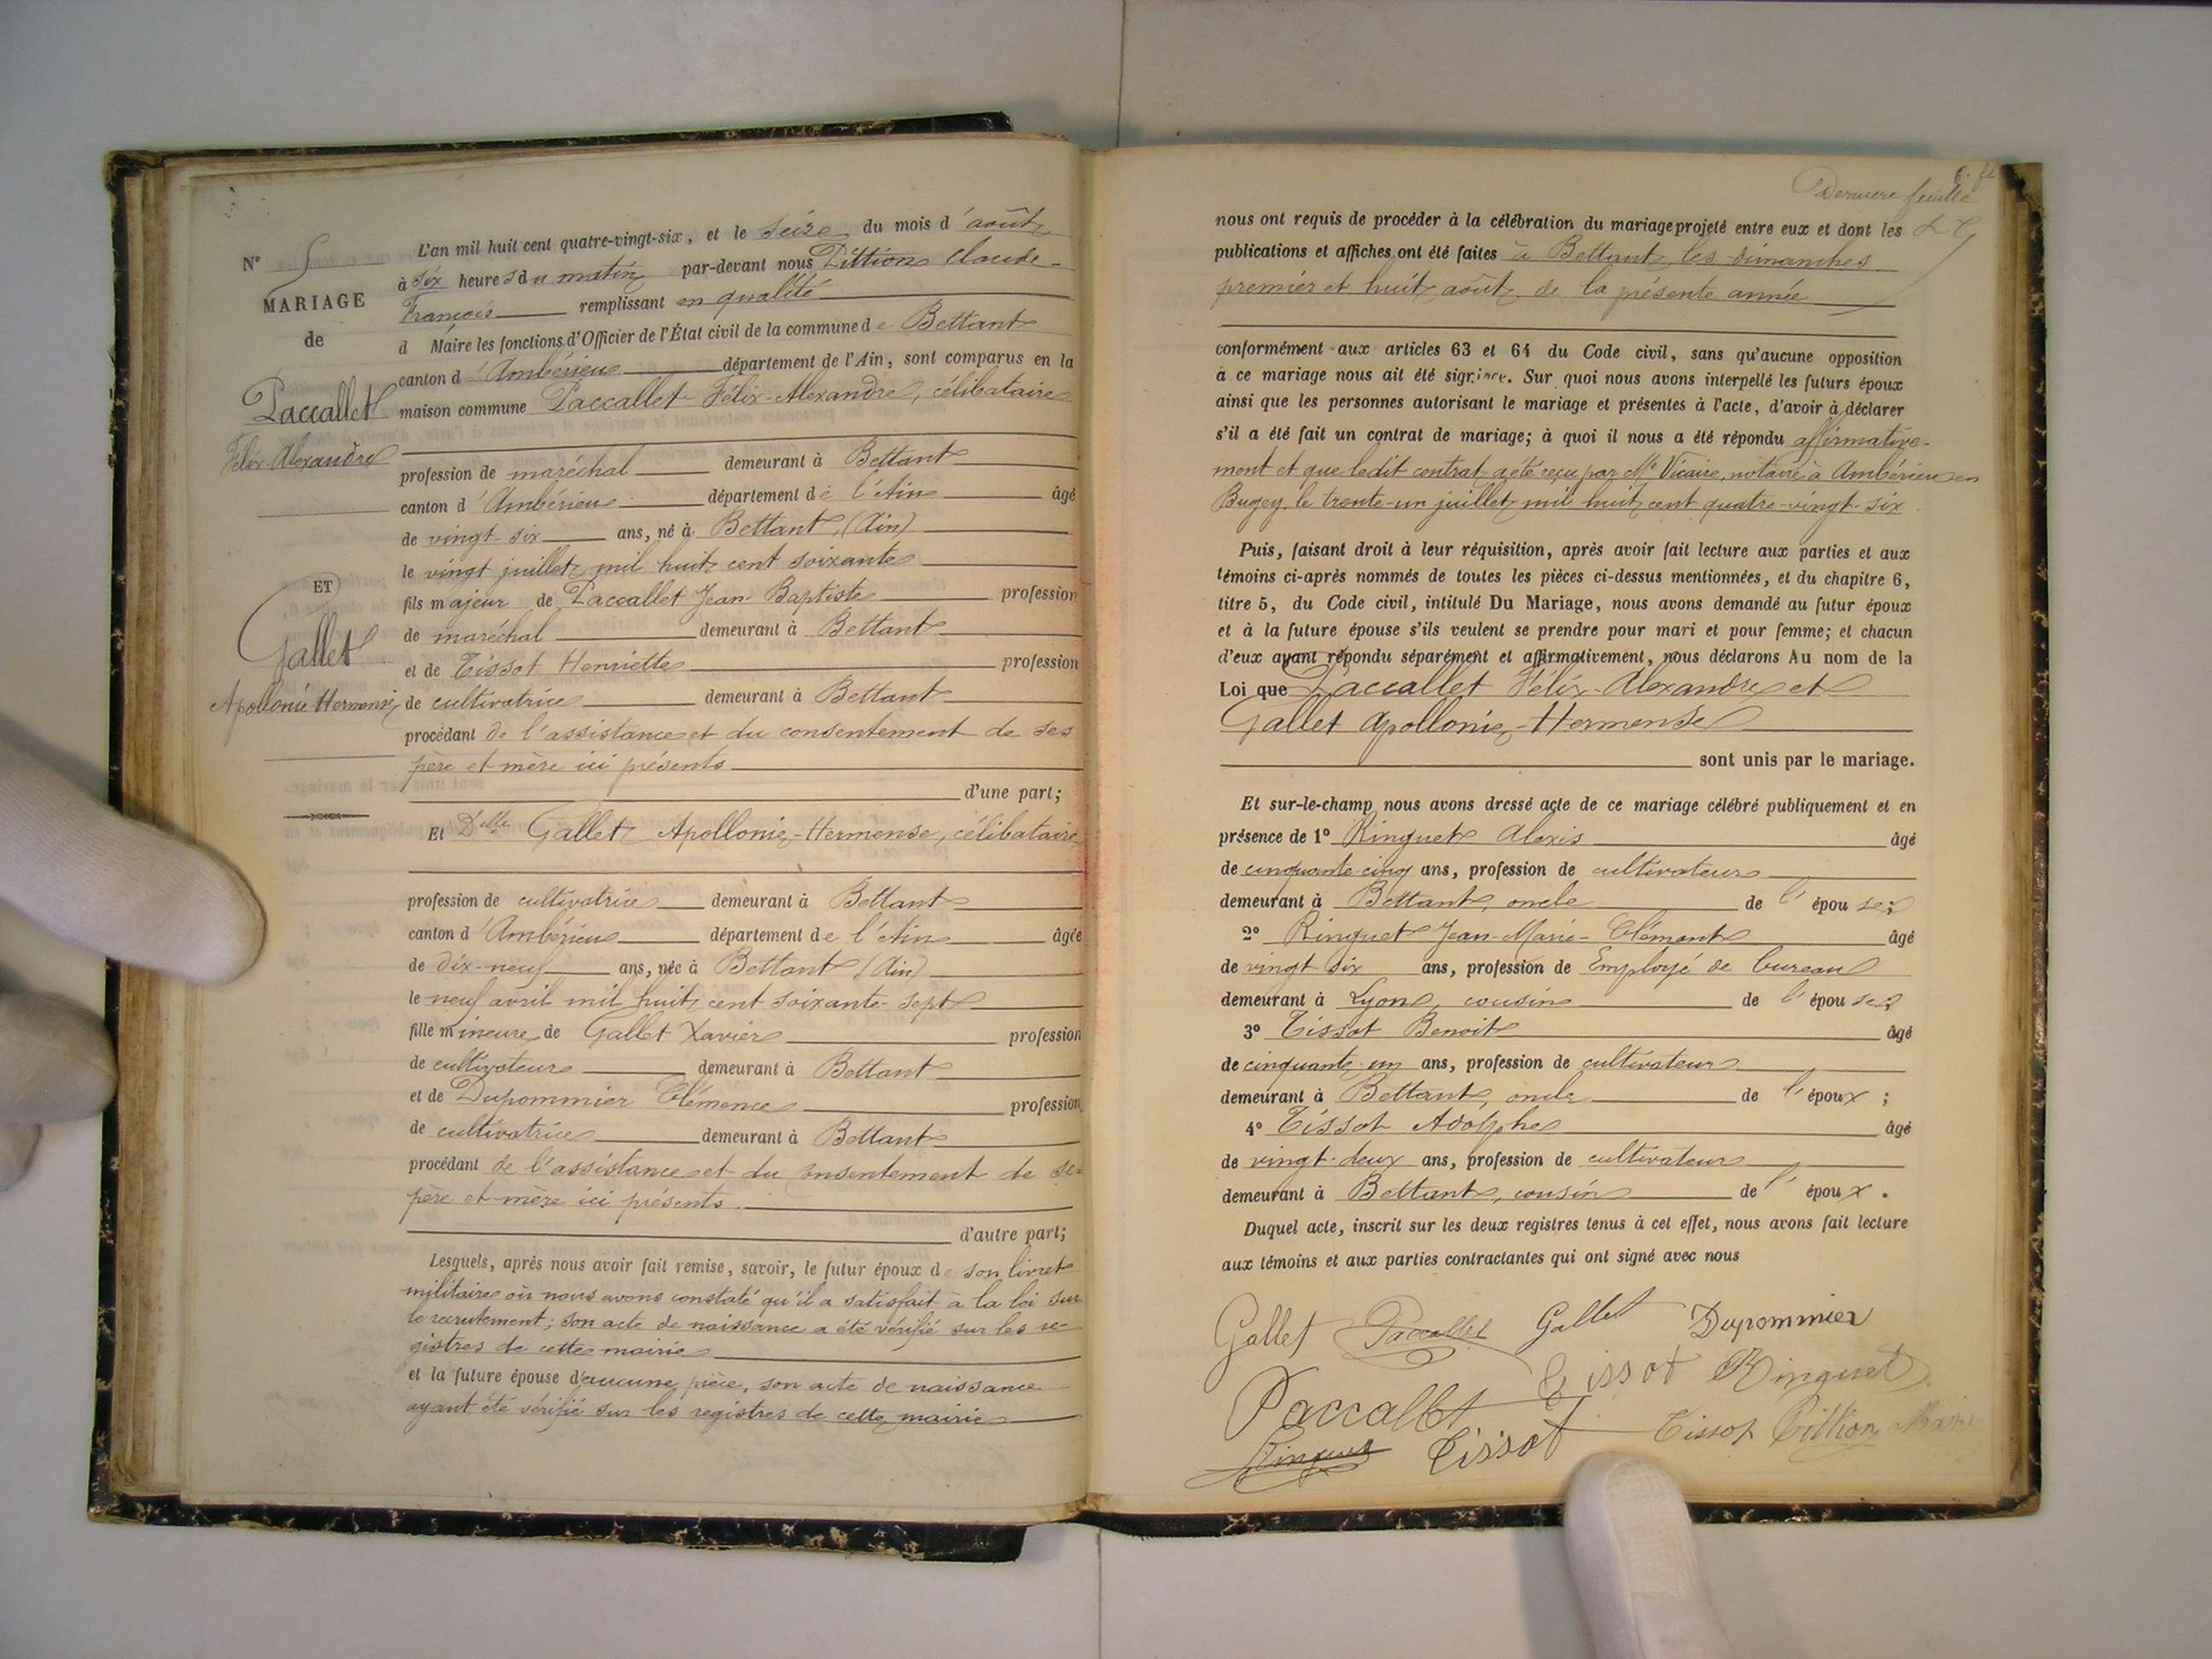 N° 5
MARIAGE
de
Paccallet
Félix-Alexandre
ET
Gallet
Apollonie Hermense
L'an mil huit cent quatre-vingt-six, et le seize du mois d'août
à six heures du matin par-devant nous Pittion Claude-
François remplissant en qualité
d Maire les fonctions d'Officier de l'État civil de la commune de Bettant
canton d'Ambérieu département de l'Ain, sont comparus en la
maison commune Paccallet Félix-Alexandre, célibataire
profession de maréchal demeurant à Bettant
canton d'Ambérieu département de l'Ain âgé
de vingt-six ans, né à Bettant (Ain)
le vingt juillet mil huit cent soixante
fils majeur de Paccallet Jean-Baptiste profession
de maréchal demeurant à Bettant
et de Tissot Henriette profession
de cultivatrice demeurant à Bettant
procédant de l'assistance et du consentement de ses
père et mère ici présents
d'une part;
Et Dlle Gallet Apollonie-Hermense, célibataire
profession de cultivatrice demeurant à Bettant
canton d'Ambérieu département de l'Ain âgée
de dix-neuf ans, née à Bettant (Ain)
le neuf avril mil huit cent soixante-sept
fille mineure de Gallet Xavier profession
de cultivateur demeurant à Bettant
et de Dupommier Clémence profession
de cultivatrice demeurant à Bettant
procédant de l'assistance et du consentement de ses
père et mère ici présents
d'autre part;
Lesquels, après nous avoir fait remise, savoir, le futur époux de son livret
militaire où nous avons constaté qu'il a satisfait à la loi sur
le recrutement; son acte de naissance a été vérifié sur les re-
gistres de cette mairie
et la future épouse d'aucune pièce, son acte de naissance
ayant été vérifié sur les registres de cette mairie
Dernière feuille
nous ont requis de procéder à la célébration du mariage projeté entre eux et dont les
publications et affiches ont été faites à Bettant, les dimanches
premier et huit août de la présente année
conformément aux articles 63 et 64 du Code civil, sans qu'aucune opposition
à ce mariage nous ait été signifiée. Sur quoi nous avons interpellé les futurs époux
ainsi que les personnes autorisant le mariage et présentes à l'acte, d'avoir à déclarer
s'il a été fait un contrat de mariage; à quoi il nous a été répondu affirmative-
ment et que ledit contrat a été reçu par Me Vicaire, notaire à Ambérieu en
Bugey, le trente-un juillet mil huit cent quatre-vingt-six
Puis, faisant droit à leur réquisition, après avoir fait lecture aux parties et aux
témoins ci-après nommés de toutes les pièces ci-dessus mentionnées, et du chapitre 6,
titre 5, du Code civil, intitulé Du Mariage, nous avons demandé au futur époux
et à la future épouse s'ils veulent se prendre pour mari et pour femme; et chacun
d'eux ayant répondu séparément et affirmativement, nous déclarons Au nom de la
Loi que Paccallet Félix-Alexandre et
Gallet Apollonie-Hermense
sont unis par le mariage.
Et sur-le-champ nous avons dressé acte de ce mariage célébré publiquement et en
présence de 1° Ringuet Alexis âgé
de cinquante-cinq ans, profession de cultivateur
demeurant à Bettant, oncle de l'épouse;
2° Ringuet Jean-Marie-Clément âgé
de vingt-six ans, profession de Employé de bureau
demeurant à Lyon, cousin de l'épouse;
3° Tissot Benoit âgé
de cinquante-un ans, profession de cultivateur
demeurant à Bettant, oncle de l'époux;
4° Tissot Adolphe âgé
de vingt-deux ans, profession de cultivateur
demeurant à Bettant, cousin de l'époux.
Duquel acte, inscrit sur les deux registres tenus à cet effet, nous avons fait lecture
aux témoins et aux parties contractantes qui ont signé avec nous
Gallet Paccallet Gallet Dupommier
Paccallet Tissot Ringuet
Ringuet Tissot Tissot Pittion Maire